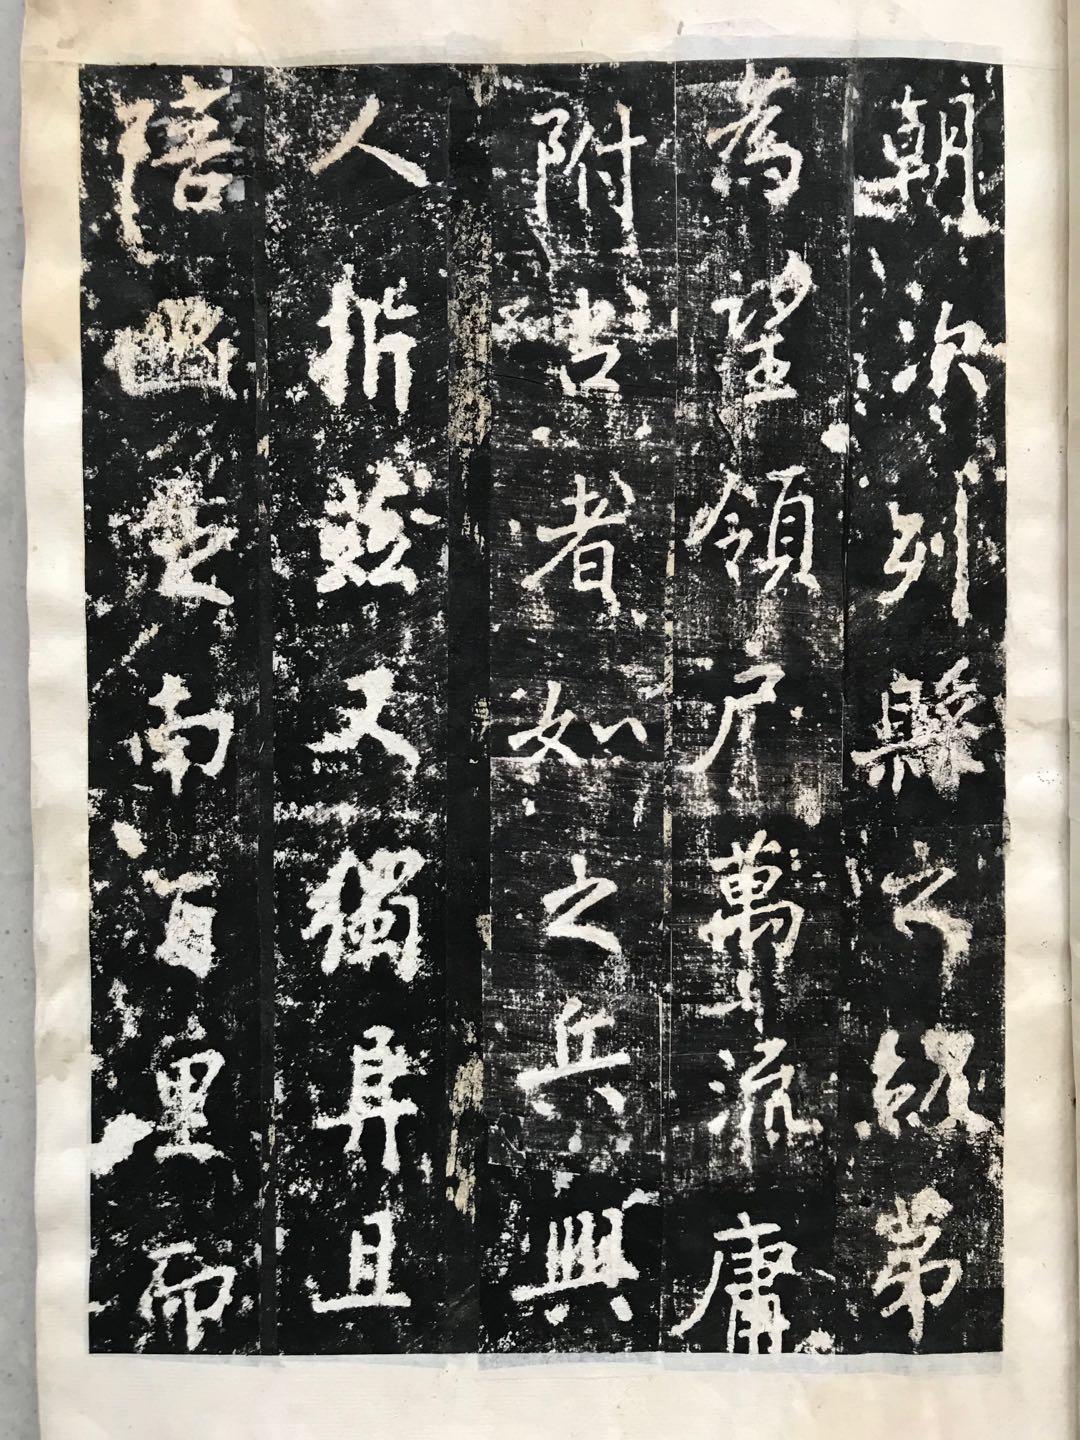 朝次列縣之級第
為望領戶萬流庸
附占者如之兵興
人折茲又獨且
陪幽南百里而